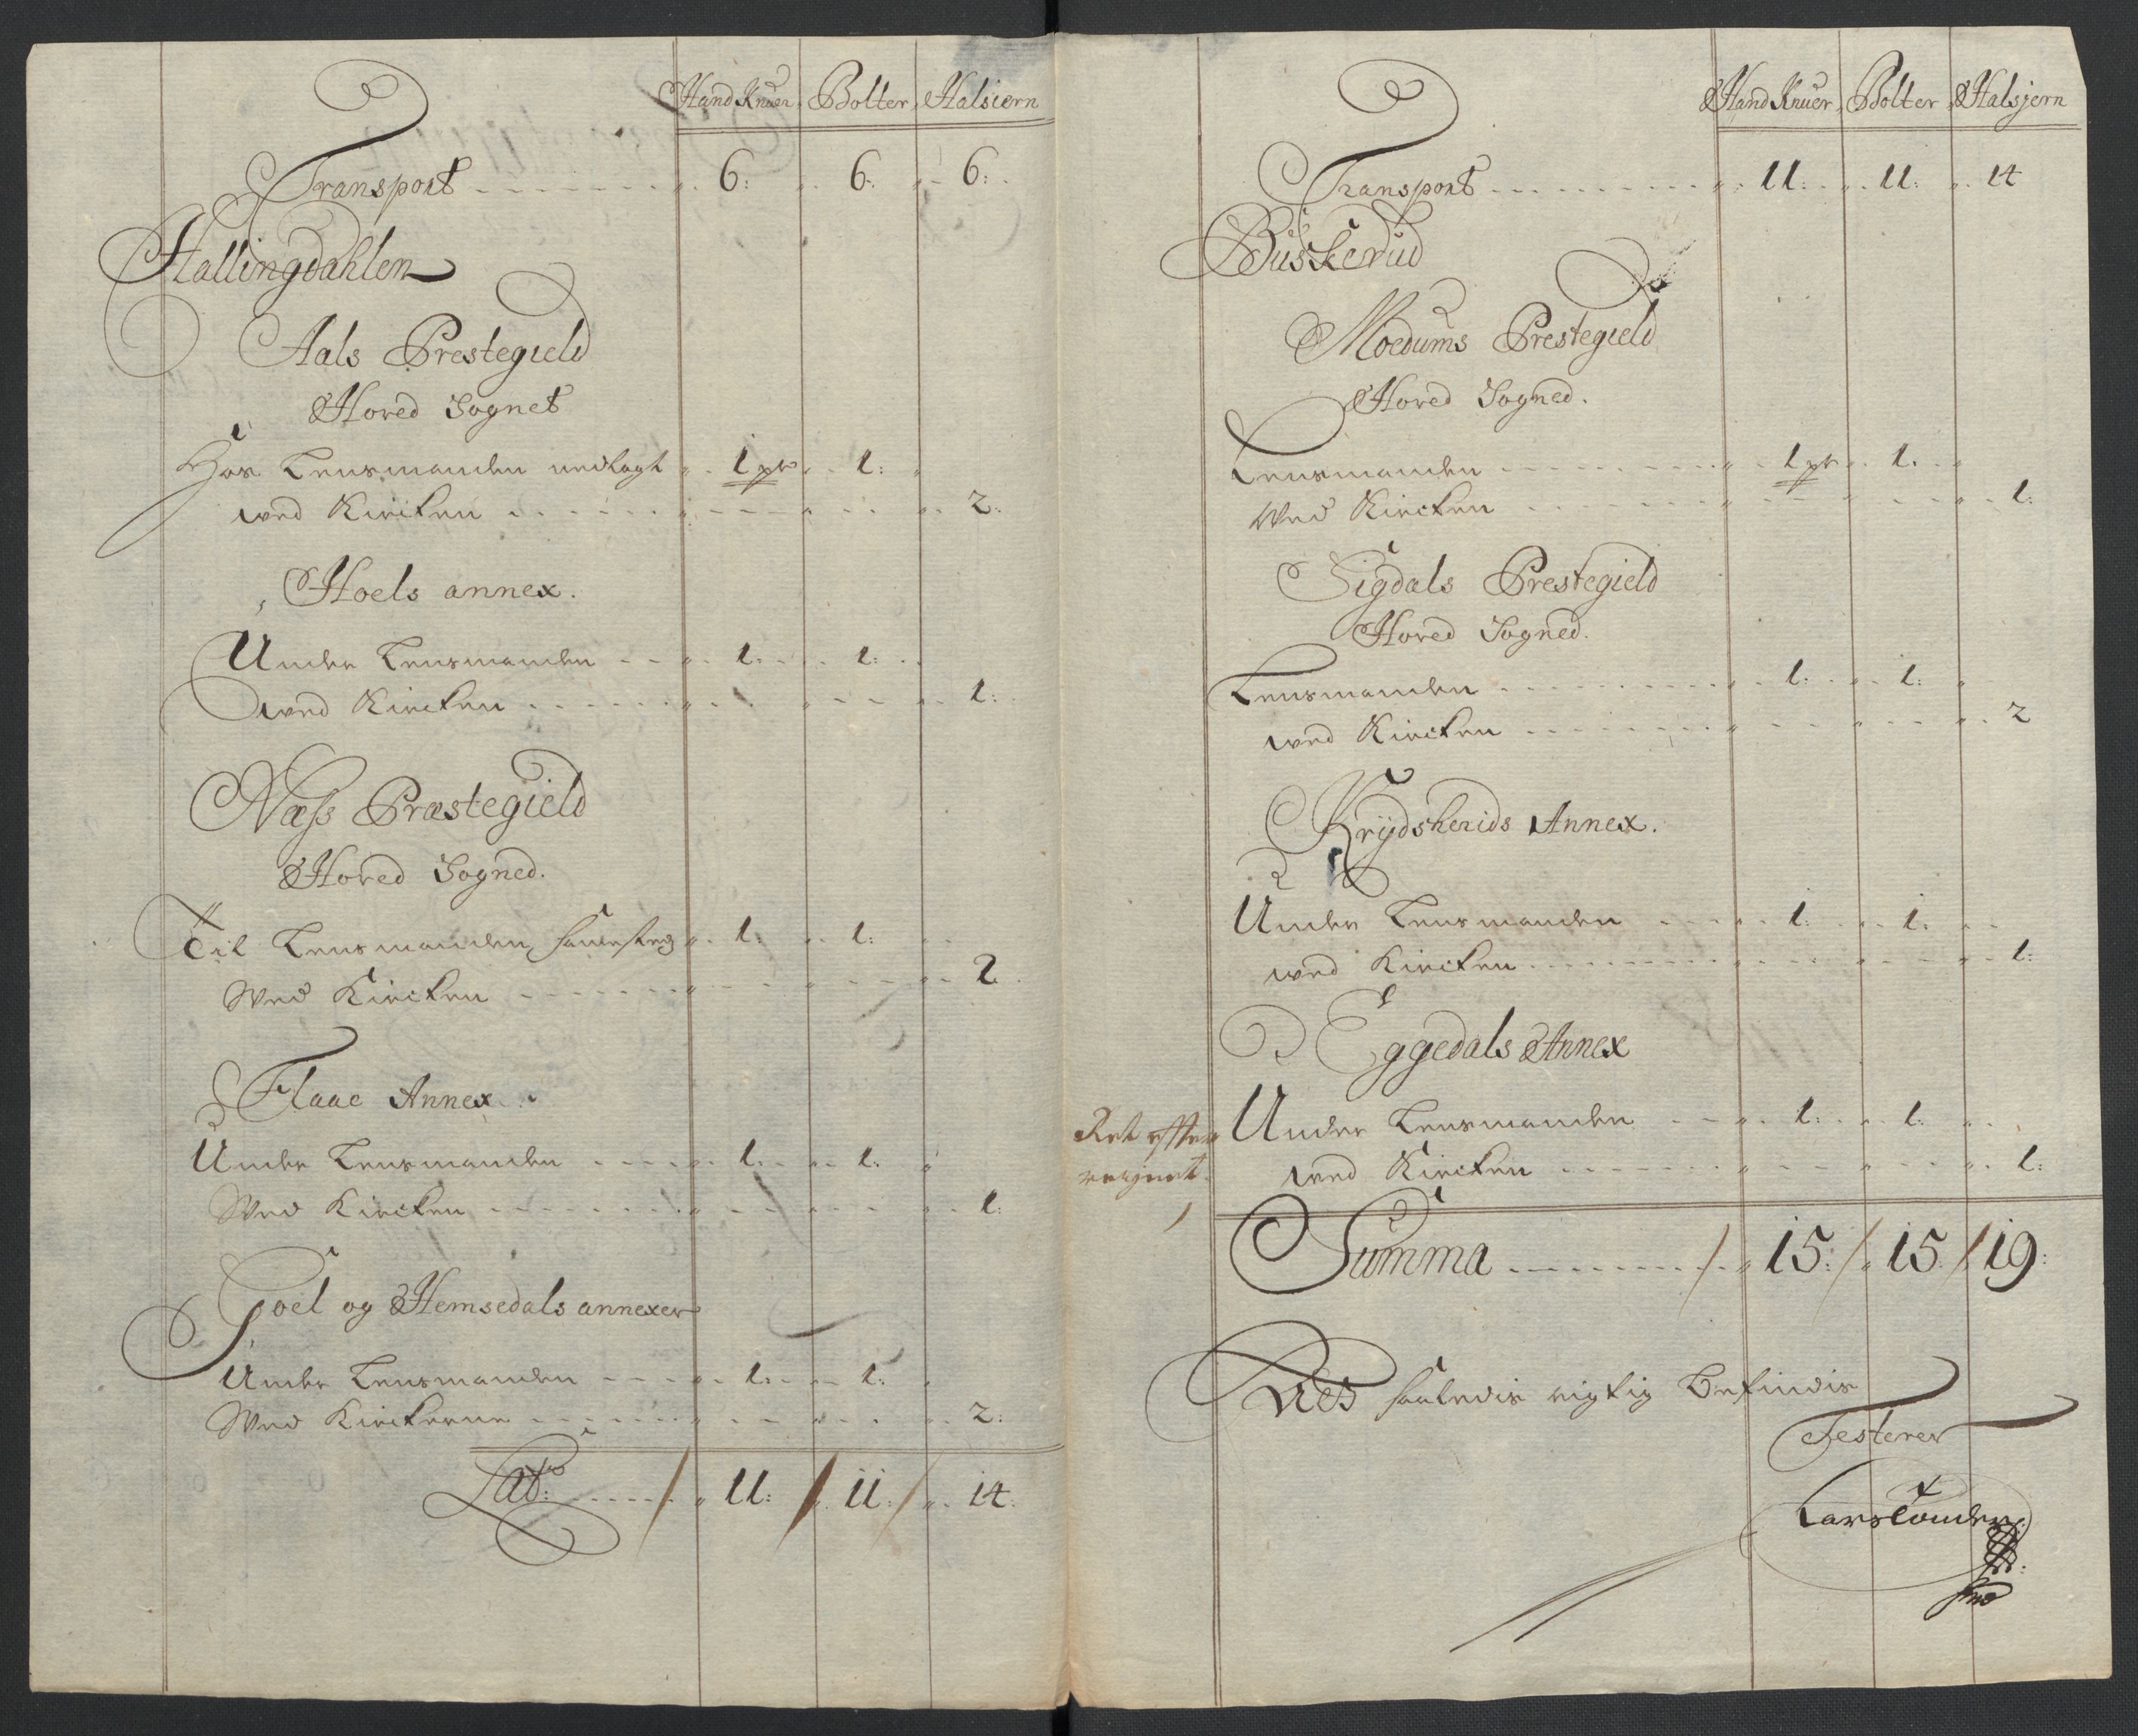 Hand Knuer Bolter Halsiern
Transport 6: 6. 6:
Hallingdahlen
Aals Prestegield
Hoved Sognet
Hos Lensmanden nedlagt 1 pr 1:
wed Kircken 2:
Hoels annex.
Under Lensmanden 1: 1:
wed Kircken 1:
Næss Præstegield
Hoved Sogned.
Til Lensmanden 1: 1:
Wed Kircken 2
Flaae Annex
Under Lensmanden 1: 1:
Wed Kircken 1:
Goel og Hemsedals annexer
Under Lensmanden 1: 1:
Wed Kirckerne 2:
Lat: 11: 11: 14:
Hand Knuer Bolter Halsjern
Transport 11: 11: 14
Buskerud
Moedums Prestegield
Hoved Sogned.
Lensmanden 1 pr 1.
Wed Kircken 1:
Sigdals Prestegield
Hoved Sogned.
Lensmanden 1: 1:
wed Kircken 2
Krÿdsherids Annex.
Under Lensmanden 1 1.
wed Kircken 1:
Eggedals Annex
Under Lensmanden 1: 1:
wed Kircken 1:
Ret effter
reignet.
Summa 15: 15 19:
Det saaledis rigtig befindis
Testerer